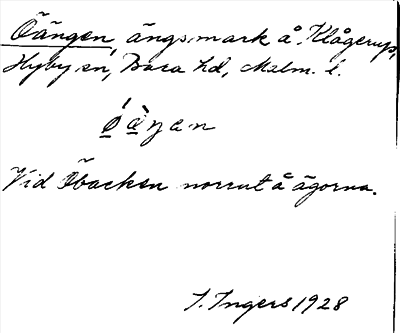 Öängen, ängsmark å Klågerup,
Hyby sn, Bara hd, Malm. l.
Vid Öbacken norrut å ägorna.
I. Ingers 1928